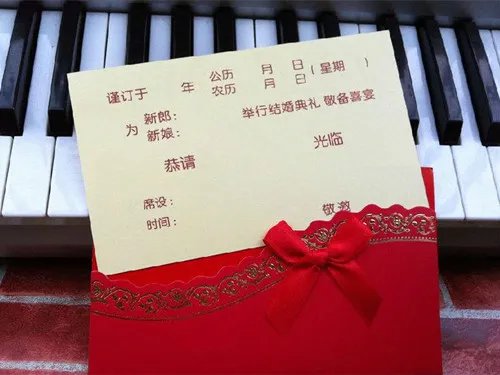 谨订于 年 公历 月 日(星期 )
农历 月 日
为 新郎: 举行结婚典礼 敬备喜宴
新娘:
恭请 光临
席设: 敬邀
时间: